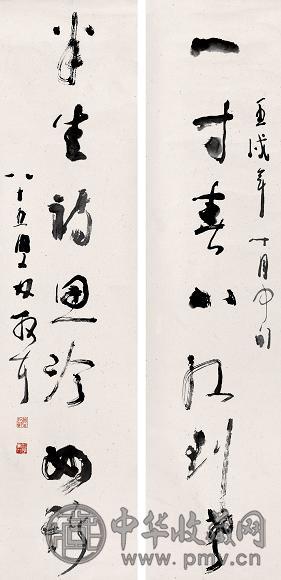 壬戌年十月中旬
一寸春心红到
半生诗思冷如
八十五叟林散耳
中华收藏网
www.pmv.cn